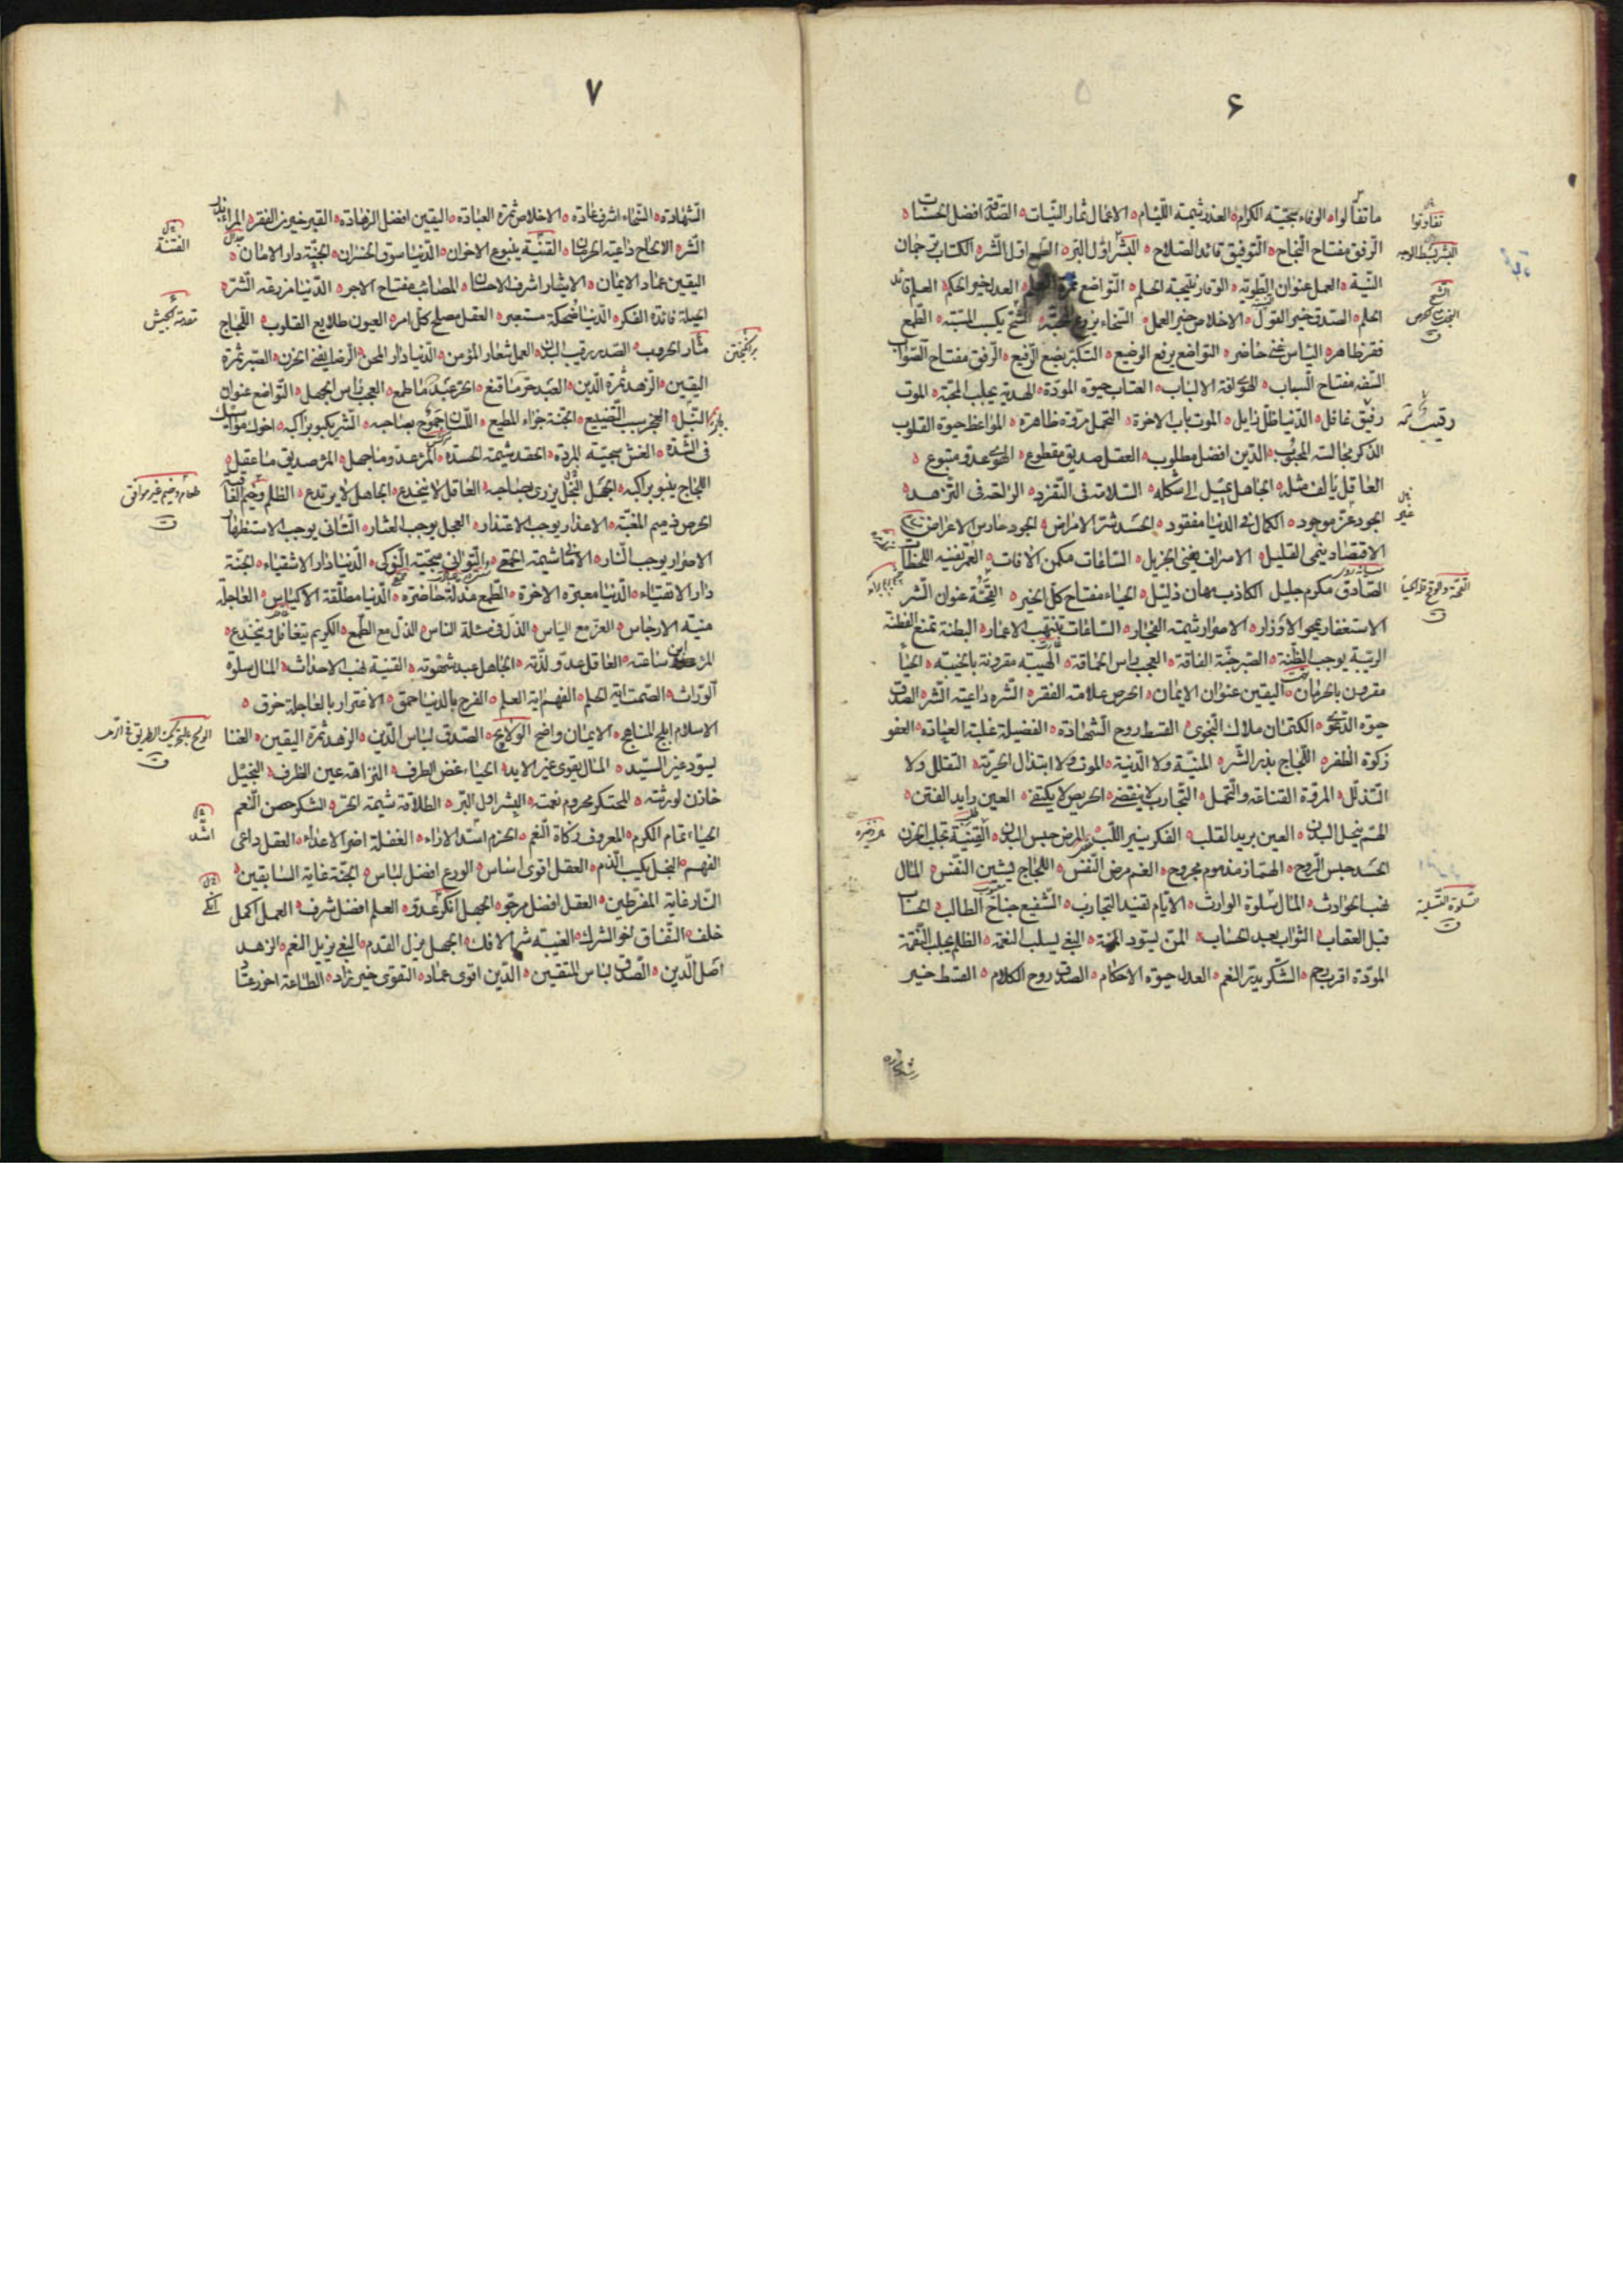 ۶
ما تفألوا ه الوفاء سجیّة الکرام ه الغدر شیمة اللئام ه الاعمال ثمار النیّات ه الصّدقة افضل الحسنات ه
الرّفق مفتاح النّجاح ه التّوفیق قائد الصّلاح ه البشر اوّل البرّ ه الطمع اوّل الشّر ه الکتاب ترجمان
النیّة ه العمل عنوان الطویّة ه الوقار نتیجة الحلم ه التّواضع ثمرة العلم ه العدل خیر الحکم ه العلم قائد
الحلم ه الصّدق خیر القول ه الاخلاص خیر العمل ه السّخاء یزرع المحبّة ه الشّح یکسب المسبّة ه الطّمع
فقر ظاهر ه الیاس غنی حاضر ه التواضع یرفع الوضیع ه التکبّر یضع الرّفیع ه الرّفق مفتاح الصّواب
السّفه مفتاح السباب ه الهوی آفة الالباب ه العتاب حیوة المودّة ه الهدیة یجلب المحبّة ه الموت
رقیق غافل ه الدّنیا ظلّ زایل ه الموت باب الاخرة ه التجمل مروّة ظاهرة ه المواعظ حیوة القلوب
الذکر مجالسة المحبوب ه الدّین افضل مطلوب ه العقل صدیق مقطوع ه الهوی عدوّ متبوع ه
العاقل یألف مثله ه الجاهل یمیل الی شکله ه السّلامة فی التّفرّد ه الراحة فی التّزهد ه
الجود عزّ موجود ه الکمال فی الدنیا مفقود ه الحسد شرّ الامراض ه الجود حارس الاعراض ه
الاقتصاد ینمی القلیل ه الاسراف یفنی الجزیل ه السّاعات مکمن الافات ه العمر تفنیه اللحظات
الصّادق مکرم جلیل الکاذب مهان ذلیل ه الحیاء مفتاح کلّ الخیر ه القحّة عنوان الشّر
الاستغفار یمحو الاوزار ه الاصرار شیمة الفجّار ه السّاعات تنتهب الاعمار ه البطنة تمنع الفطنة
الریبة یوجب الظّنة ه الصّبر جنّة الفاقة ه العجب راس الحماقة ه الهیبة مقرونة بالخیبة ه الحیاء
مقرون بالحرمان ه الیقین عنوان الایمان ه الحرص علامة الفقر ه الشّره داعیة الشّر ه الصّدق
حیوة الدّعوی ه الکتمان ملاک النّجوی ه القسط روح الشّهادة ه الفضیلة غلبة العادة ه العفو
زکوة الظّفر ه اللّجاج بذر الشّر ه المنیّة ولا الدّنیة ه الموت ولا ابتذال الحرّیة ه التقلّل ولا
التّذلّل ه المروّة القناعة والتّجمل ه التّجارب لا ینقضی ه الحریص لا یکتفی ه العین راید الفتن ه
الهمّ ینحل البدن ه العین برید القلب ه الفکر ینیر اللّب ه المرض حبس البدن ه القنیة تجلب الحزن
الحسد حبس الرّوح ه الهمّاز مذموم مجروح ه الغم مرض النّفس ه اللجاج یشین النّفس ه المال
نهب الحوادث ه المال سلوة الوارث ه الایّام تفید التجارب ه الشّفیع جناح الطالب ه الحساب
قبل العقاب ه الثّواب بعد الحساب ه المنّ یسوّد المنّة ه البغی یسلب النعمة ه الظلم یجلب النّقمة
المودّة اقرب رحم ه الشّکر یدرّ النعم ه العدل حیوة الاحکام ه الصدق روح الکلام ه القسط خیر
تفاوتوا
البشر بسط الوجه
الشّح
غیر
۷
الشّهادة ه السّخاء اشرف عادة ه الاخلاص ثمرة العبادة ه الیقین افضل الزهادة ه القبر خیر من الفقر ه
الشّره الالحاح داعیة الحرمان ه القنیة ینبوع الاحزان ه الدّنیا سوق الخسران ه الجنّة دار الامان ه
الیقین عماد الایمان ه الایثار اشرف الاحسان ه المصائب مفتاح الاجر ه الدّنیا مزرعة الشّرّ ه
الحیلة فائدة الفکر ه الدّنیا ضحکة مستعبر ه العقل مصلح کلّ امر ه العیون طلایع القلوب ه اللّجاج
مثار الحروب ه الصّدر رقیب البدن ه العمل شعار المؤمن ه الدّنیا دار المحن ه الرضا ینفی الحزن ه الصّبر ثمرة
الیقین ه الزّهد ثمرة الدّین ه العبد حرّ ما قنع ه الحرّ عبد ما طمع ه العجب راس الجهل ه التّواضع عنوان
النّبل ه العجز سبب التّضییع ه الجنّة جزاء المطیع ه اللّسان جموح بصاحبه ه الشّر یکبو براکبه ه اخوک مواسیک
فی الشّدّة ه الغش سجیّة المردة ه الحقد شیمة الحسدة ه المرء عدوّ ما جهل ه المرء صدیق ما عقل ه
اللجاج ینبو براکبه ه البخل یزری بصاحبه ه العاقل لا ینخدع ه الجاهل لا یرتدع ه الظلم وخیم العاقبة
الحرص ذمیم المغبّة ه الاعذار یوجب الاعتذار ه العجل یوجب العثار ه التّانی یوجب الاستظهار
الاصرار یوجب النّار ه الامانی شیمة الحمقی ه التّوانی سجیّة النّوکی ه الدّنیا دار الاشقیاء ه الجنّة
دار الاتقیاء ه الدّنیا معبرة الاخرة ه الطّمع مذلّة حاضرة ه الدّنیا مطلّقة الاکیاس ه العاجلة
منیة الارجاس ه العزّ مع الیاس ه الذّل فی مسئلة الناس ه الذّل مع الطّمع ه الکریم یتغافل وینخدع ه
المرء ابن ساعته ه العاقل عدوّ لذّته ه الجاهل عبد شهوته ه القنیة نهب الاحداث ه المال سلوة
الورّاث ه الصّمت آیة الحلم ه الفهم آیة العلم ه الفرح بالدنیا حمق ه الاغترار بالعاجلة خرق ه
الاسلام ابلج المناهج ه الایمان واضح الولایج ه الصّدق لباس الدّین ه الزهد ثمرة الیقین ه الغنا
یسوّد غیر السیّد ه المال یقوی غیر الاید ه الحیاء غض الطرف ه النزاهة عین الظرف ه البخیل
خازن لورثته ه المحتکر محروم نعمته ه البشر اوّل البّر ه الطلاقة شیمة الحرّ ه الشکر حصن النّعم
الحیاء تمام الکرم ه المعروف زکاة النّعم ه الحزم اسدّ الاراء ه الغفلة اضرّ الاعداء ه العقل داعی
الفهم ه البخل یکسب الذّم ه العقل اقوی اساس ه الورع افضل لباس ه الجنّة غایة السابقین ه
النّار غایة المفرّطین ه العقل افضل مرجوّ ه الجهل انکی عدوّ ه العلم افضل شرف ه العمل اکمل
خلف ه النّفاق اخو الشرک ه الغیبة شرّ الافک ه الجهل یزلّ القدم ه البغی یزیل النعم ه الزهد
اصل الدّین ه الصّدق لباس المتّقین ه الدّین اقوی عماد ه التقوی خیر زاد ه الطّاعة احرز عتاد
الفتنة
مقدمة الجیش
برانگیختن
طعام وخیم غیر موافق
اشدّ